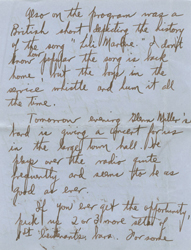 Also on the program was a
British short depicting the history
of the song "Lili Marlene." I don't
know popular the song is back
home, but the boys in the
service whistle and hum it all
the time.
Tomorrow evening Glenn Miller's
band is giving a concert
in the large town hall. He
plays over the radio quite
frequently and seems to be as
good as ever.
If you ever get the opportunity
pick up 2 or 3 more sets of
1st Lieutenants bars. For some